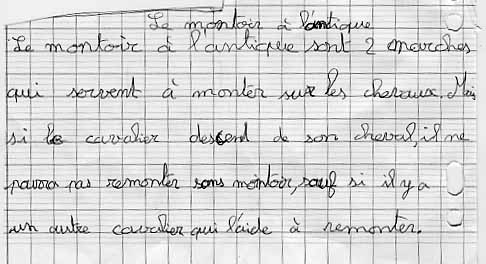 Le montoir à l'antique
Le montoir à l'antique sont 2 marches
qui servent à monter sur les chevaux. Mais
si le cavalier descend de son cheval, il ne
pourra pas remonter sans montoir, sauf si il y a
un autre cavalier qui l'aide à remonter.